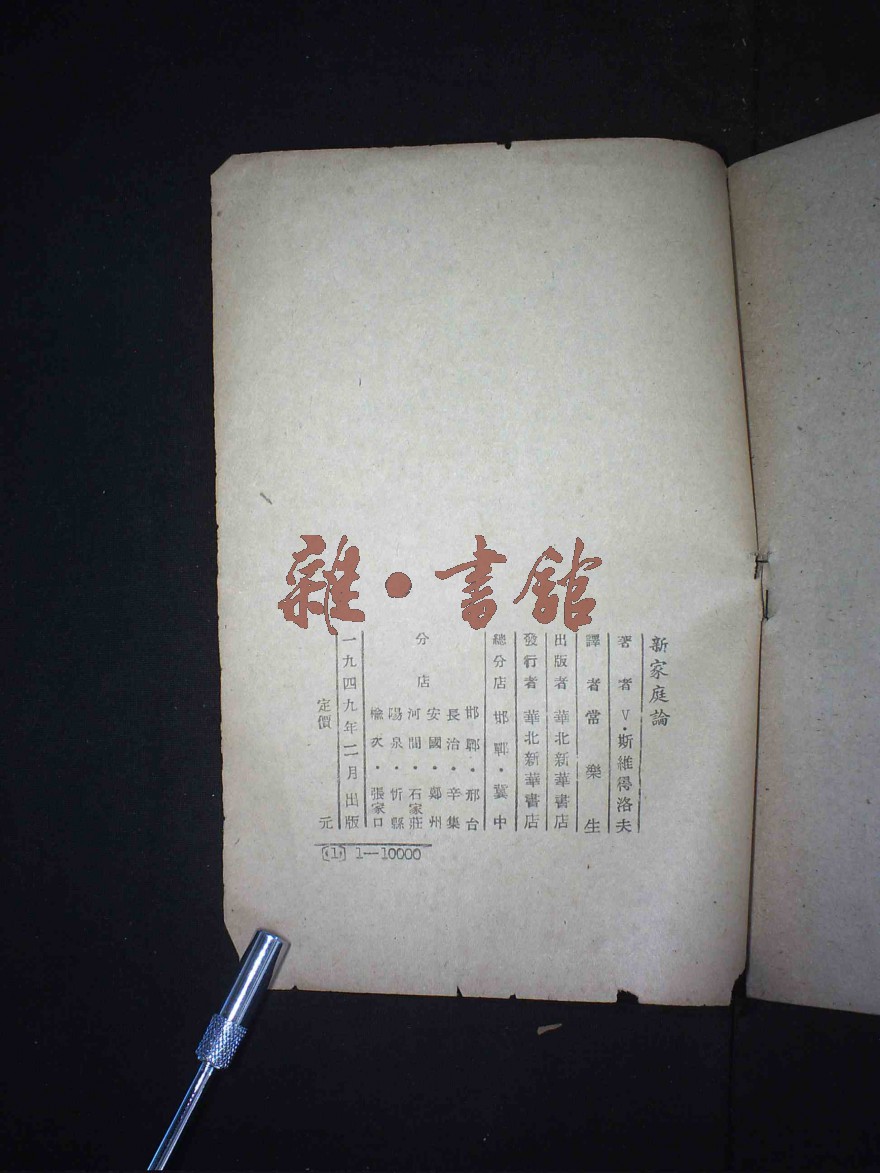 雜·書館
新家庭論
著者 V·斯維得洛夫
譯者 常樂生
出版者 華北新華書店
發行者 華北新華書店
總分店 邯鄲·冀中
分店
邯鄲·邢台
長治·辛集
安國·鄭州
河間·石家莊
陽泉·忻縣
榆次·張家口
一九四九年二月出版
定價 元
(1) 1—10000